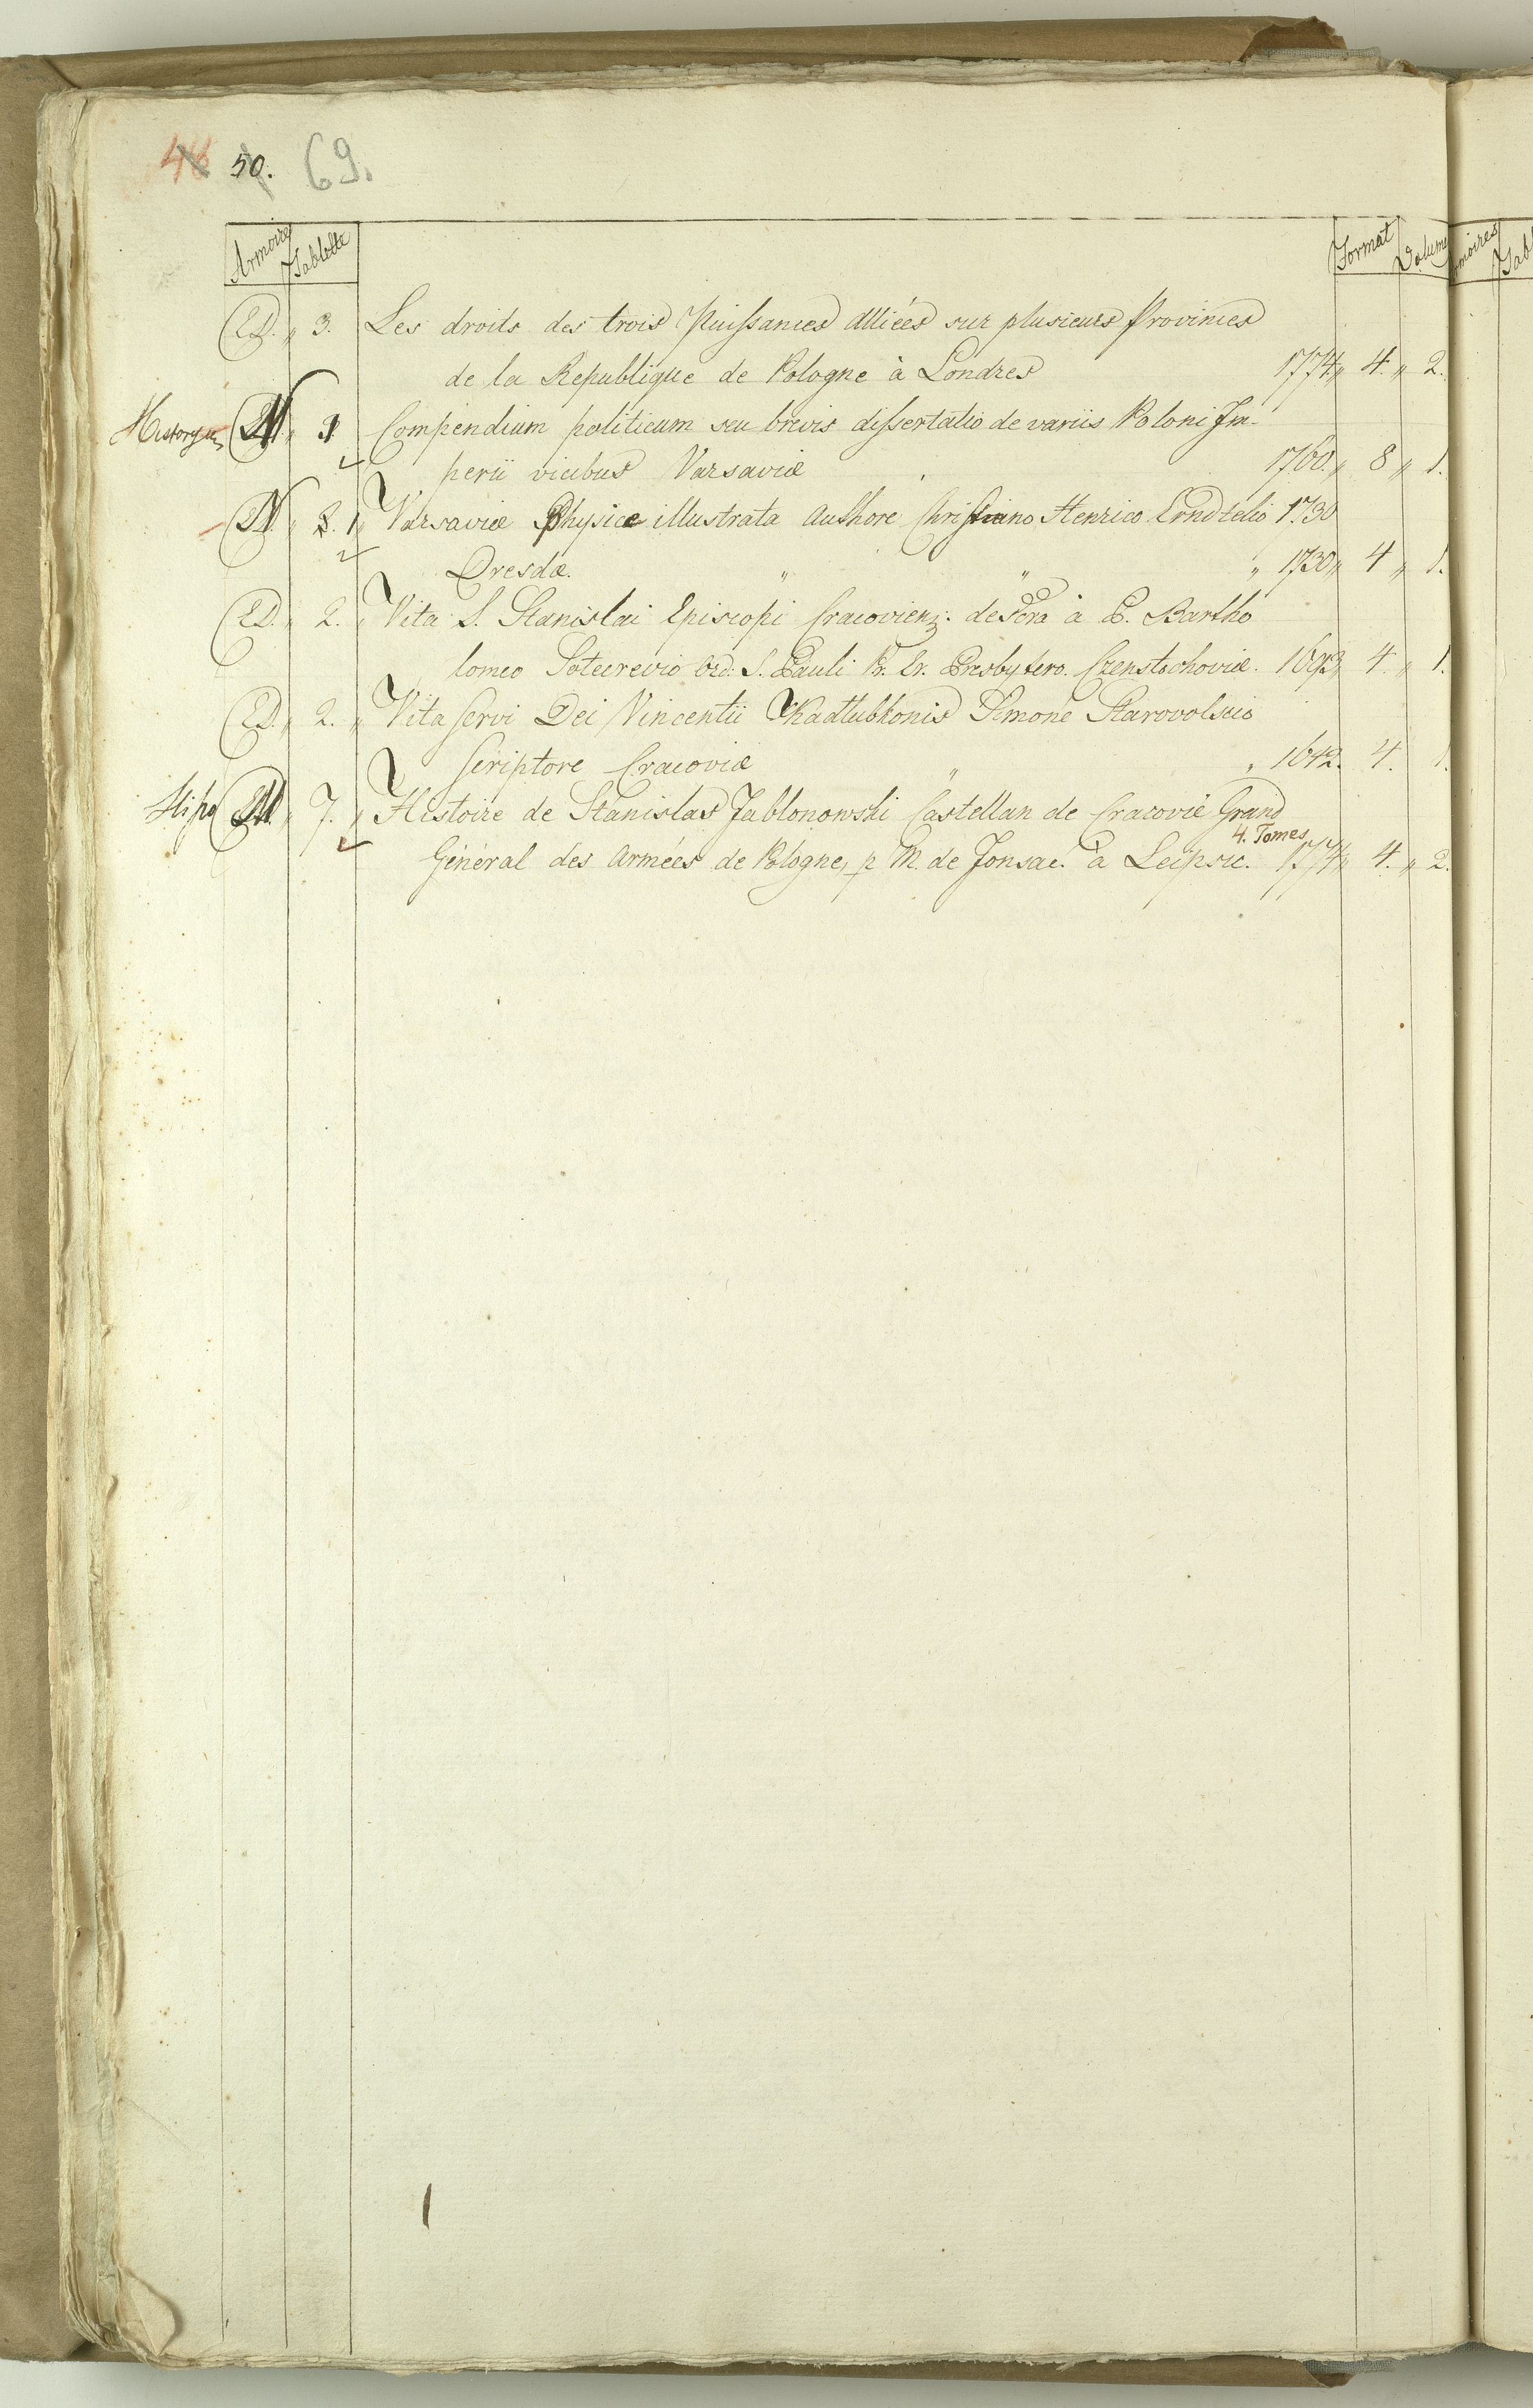 46 50. 69.
Armoire Tablette Format Volume
Ed. „ 3. Les droits des trois Puissances alliées sur plusieurs Provinces
de la Republique de Pologne à Londres 1774 „ 4. „ 2.
Compendium politicum seu brevis dissertatio de variis Poloni Im-
perii vicibus Varsaviæ 1760. „ 8 „ 1.
Varsaviæ Physice illustrata Authore Christiano Henrico Erndtelio 1730
Dresdæ. „ „ „ 1730 „ 4 „ 1.
Ed. „ 2. „ Vita S. Stanislai Episcopi Cracovienz. a P. Bartho
lomeo Ord: S. Pauli Pr. Er. Presbytero. Czenstochoviæ. 1693 „ 4. „ 1.
Ed. „ 2. „ Vita servi Dei Vincentii Kadlubkonis Simone Starovolscio
scriptore Cracoviæ „ „ 1642. 4. 1.
7. „ Histoire de Stanislas Jablonowski Castellan de Cracovie Grand
4. Tomes
Général des Armées de Pologne, p M. de Jonsac. à Leipsic. 1774 „ 4. „ 2.